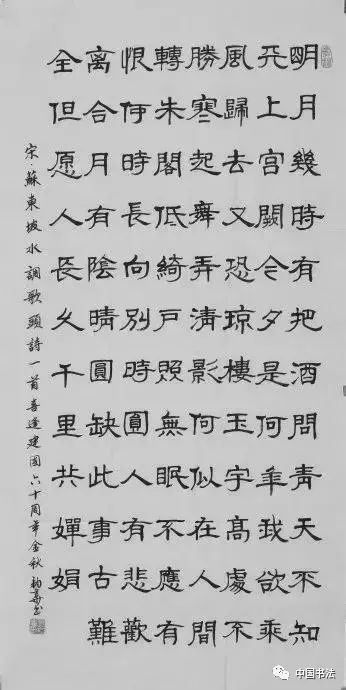 明月幾時有把酒問青天不知
天上宫闕今夕是何年我欲乘
風歸去又恐瓊樓玉宇高處不
勝寒起舞弄清影何似在人間
轉朱閣低綺戶照無眠不應有
恨何時長向別時圓人有悲歡
离合月有陰晴圓缺此事古難
全但愿人長久千里共嬋娟
宋·蘇東坡水調歌頭詩一首喜逢建国六十周年金秋
中国书法